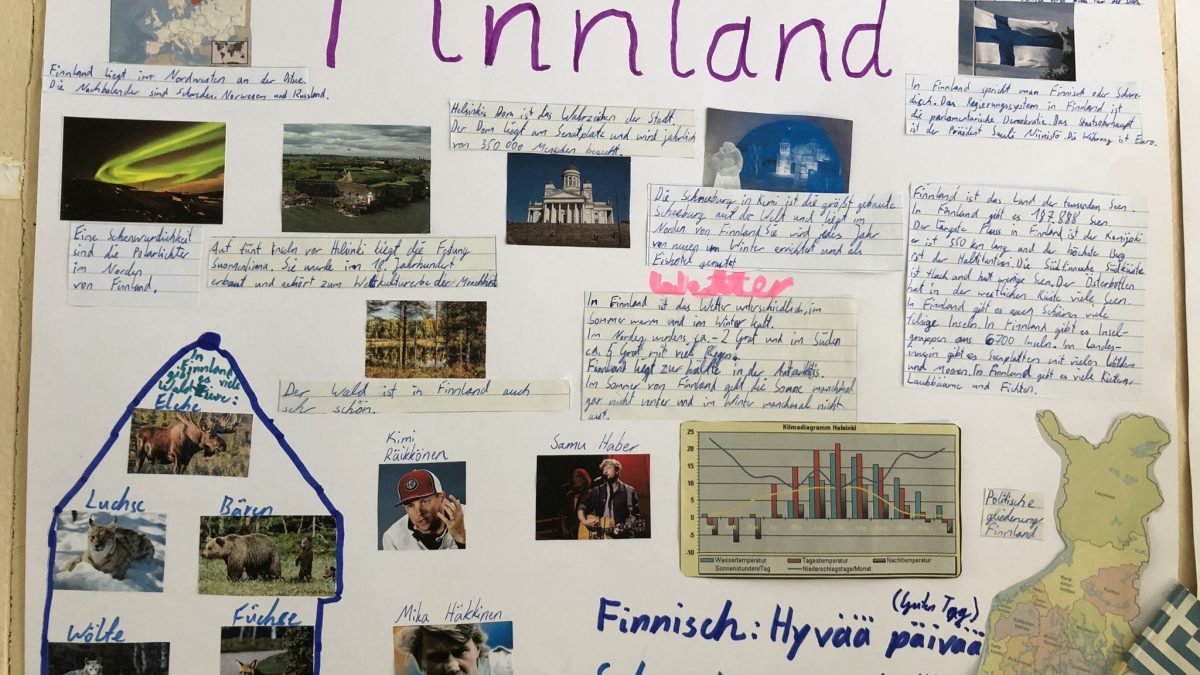 Finnland
Finnland liegt im Nordwesten an der Ostsee.
Die Nachbarländer sind Schweden, Norwegen und Russland.
Helsinkis Dom ist das Wahrzeichen der Stadt.
Der Dom liegt am Senatplatz und wird jährlich
von 350 000 Menschen besucht.
In Finnland spricht man Finnisch oder Schwe-
disch. Das Regierungssystem in Finnland ist
die parlamentarische Demokratie. Das Staatsoberhaupt
ist der Präsident Sauli Niinistö. Die Währung ist Euro.
Eine Sehenswürdichkeit
sind die Polarlichter
im Norden
von Finnland.
Auf fünf Inseln vor Helsinki liegt die Festung
Suomenlinna. Sie wurde im 18. Jahrhundert
erbaut und gehört zum Weltkulturerbe der Menschheit
Die Schneeburg in Kemi ist die größt gebaute
Schneeburg auf der Welt und liegt im
Norden von Finnland. Sie wird jedes Jahr
von neuem im Winter errichtet und als
Eishotel genutzt
Finnland ist das Land der tausenden Seen.
In Finnland gibt es 187.888 Seen.
Der längste Fluss in Finnland ist der Kemijoki
er ist 550 km lang und der höchste Berg
ist der Haltitunturi. Die Südküste
ist flach und hat wenige Seen. Der Osterbotten
hat in der westlichen Küste viele Seen.
In Finnland gibt es auch Schären viele
felsige Inseln. In Finnland gibt es Insel-
gruppen aus 6700 Inseln. Im Landes-
innern gibt es Seenplatten mit vielen Wäldern
und Mooren. In Finnland gibt es viele
Laubbäume und Fichten.
Wetter
In Finnland ist das Wetter unterschiedlich, im
Sommer warm und im Winter kalt.
Im Norden wurdens ca -2 Grad und im Süden
ca. 5 Grad mit viel Regen.
Finnland liegt zur hälfte in der
Im Sommer von Finnland geht die Sonne manchmal
gar nicht unter und im Winter manchmal nicht
auf.
Der Wald ist in Finnland auch
sehr schön.
In
Finnland
gibt es viele
Elche
Luchse
Bären
Wölfe
Füchse
Kimi
Räikkönen
Samu Haber
Mika Häkkinen
Klimadiagramm Helsinki
25
20
15
10
5
-5
-10
Wassertemperatur Tagestemperatur Nachttemperatur
Sonnenstunden/Tag Niederschlagstage/Monat
Politische
gliederung
Finnland
Lappland
(Guten Tag)
Finnisch: Hyvää päivää